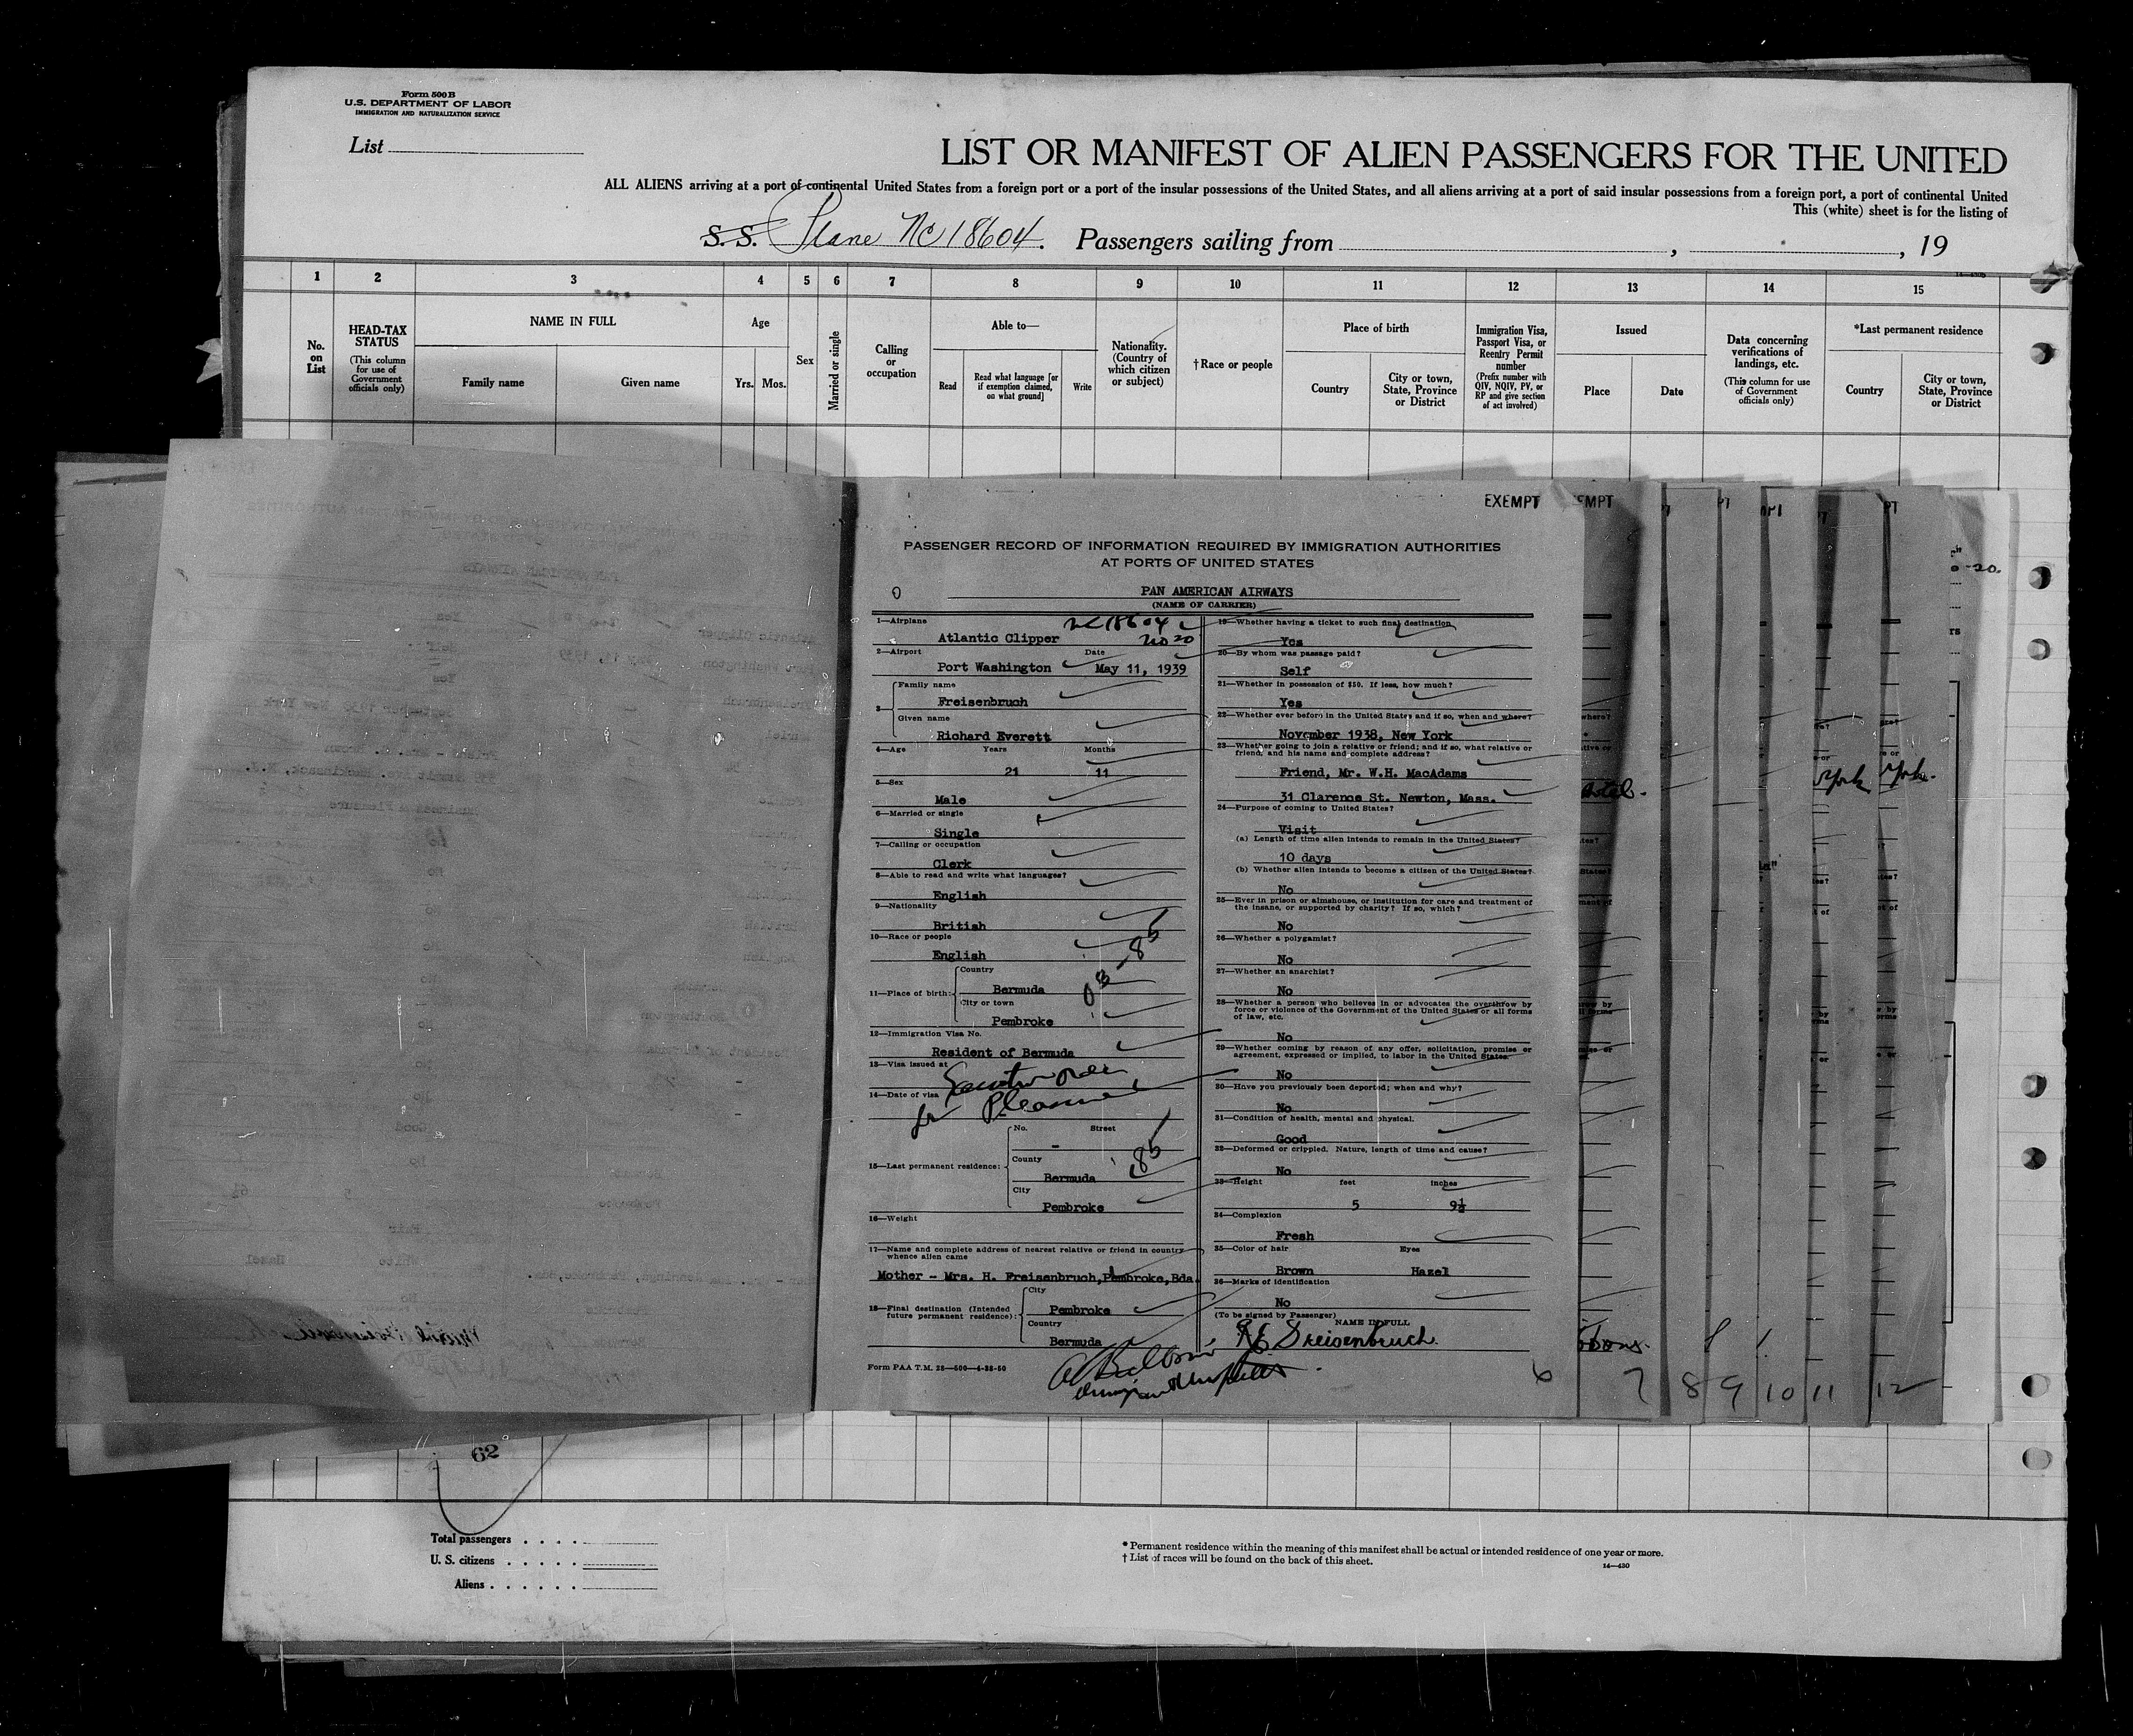 Form 500B
U.S. DEPARTMENT OF LABOR
IMMIGRATION AND NATURALIZATION SERVICE
List
LIST OR MANIFEST OF ALIEN PASSENGERS FOR THE UNITED
ALL ALIENS arriving at a port of continental United States from a foreign port or a port of the insular possessions of the United States, and all aliens arriving at a port of said insular possessions from a foreign port, a port of continental United
This (white) sheet is for the listing of
S. S. Plane NC 18604. Passengers sailing from , , 19
1 2 3 4 5 6 7 8 9 10 11 12 13 14 15
No. on List
HEAD-TAX STATUS
(This column for use of Government officials only)
NAME IN FULL
Family name Given name
Age
Yrs. Mos.
Sex
Married or single
Calling or occupation
Able to—
Read
Read what language [or if exemption claimed, on what ground]
Write
Nationality. (Country of which citizen or subject)
†Race or people
Place of birth
Country
City or town, State, Province or District
Immigration Visa, Passport Visa, or Reentry Permit number
(Prefix number with QIV, NQIV, PV, or RP and give section of act involved)
Issued
Place Date
Data concerning verifications of landings, etc.
(This column for use of Government officials only)
*Last permanent residence
Country
City or town, State, Province or District
EXEMPT
PASSENGER RECORD OF INFORMATION REQUIRED BY IMMIGRATION AUTHORITIES
AT PORTS OF UNITED STATES
PAN AMERICAN AIRWAYS
(NAME OF CARRIER)
1—Airplane NC18604
Atlantic Clipper no 20
2—Airport Date
Port Washington May 11, 1939
3—
Family name
Freisenbruch
Given name
Richard Everett
4—Age Years Months
21 11
5—Sex
Male
6—Married or single
Single
7—Calling or occupation
Clerk
8—Able to read and write what languages?
English
9—Nationality
British
10—Race or people
English
11—Place of birth:
Country
Bermuda
City or town
Pembroke
03-85
12—Immigration Visa No.
Resident of Bermuda
13—Visa issued at
14—Date of visa
for Pleasure
15—Last permanent residence:
No. Street
-
County
Bermuda
City
Pembroke
85
16—Weight
17—Name and complete address of nearest relative or friend in country whence alien came
Mother - Mrs. H. Freisenbruch, Pembroke, Bda.
18—Final destination (Intended future permanent residence):
City
Pembroke
Country
Bermuda
Form PAA T.M. 28—500—4-38-50
19—Whether having a ticket to such final destination
Yes
20—By whom was passage paid?
Self
21—Whether in possession of $50. If less, how much?
Yes
22—Whether ever before in the United States and if so, when and where?
November 1938, New York
23—Whether going to join a relative or friend; and if so, what relative or friend, and his name and complete address?
Friend, Mr. W.H. MacAdams
31 Clarence St. Newton, Mass.
24—Purpose of coming to United States?
Visit
(a) Length of time alien intends to remain in the United States?
10 days
(b) Whether alien intends to become a citizen of the United States?
No
25—Ever in prison or almshouse, or institution for care and treatment of the insane, or supported by charity? If so, which?
No
26—Whether a polygamist?
No
27—Whether an anarchist?
No
28—Whether a person who believes in or advocates the overthrow by force or violence of the Government of the United States or all forms of law, etc.
No
29—Whether coming by reason of any offer, solicitation, promise or agreement, expressed or implied, to labor in the United States.
No
30—Have you previously been deported; when and why?
No
31—Condition of health, mental and physical.
Good
32—Deformed or crippled. Nature, length of time and cause?
No
33—Height feet inches
5 9½
34—Complexion
Fresh
35—Color of hair Eyes
Brown Hazel
36—Marks of identification
No
(To be signed by Passenger)
NAME IN FULL
R E Freisenbruch.
6 7 8 9 10 11 12
62
Total passengers
U. S. citizens
Aliens
* Permanent residence within the meaning of this manifest shall be actual or intended residence of one year or more.
† List of races will be found on the back of this sheet.
14—430